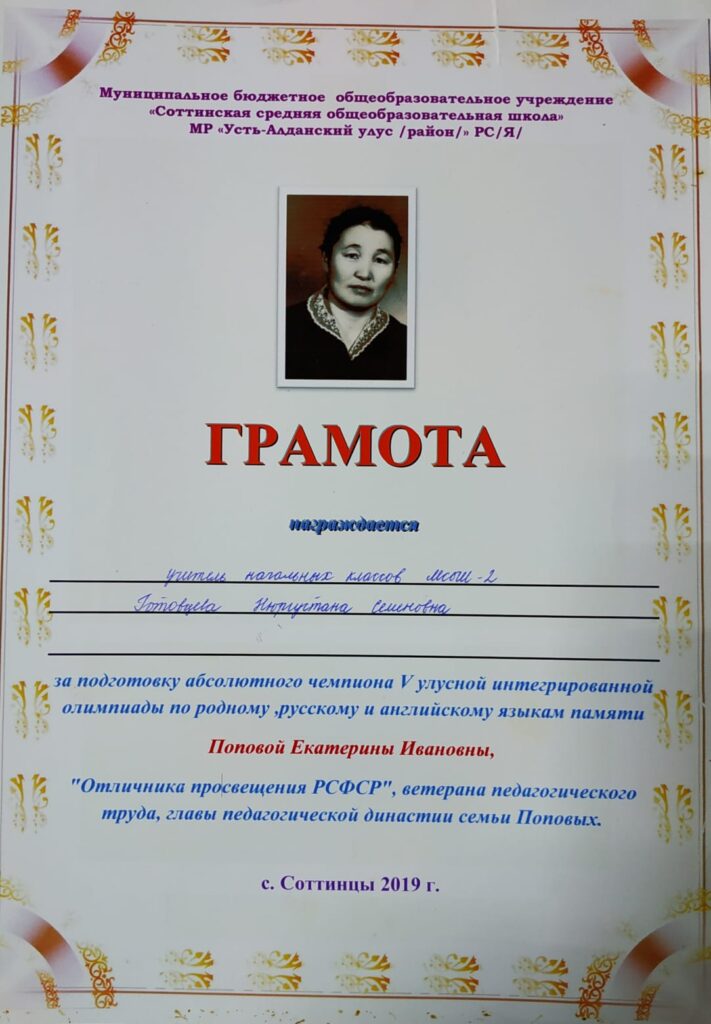 Муниципальное бюджетное общеобразовательное учреждение
«Соттинская средняя общеобразовательная школа»
МР «Усть-Алданский улус /район/» РС/Я/
ГРАМОТА
награждается
учитель начальных классов МСОШ-2
Готовцева Нюргустана Семеновна
за подготовку абсолютного чемпиона V улусной интегрированной
олимпиады по родному ,русскому и английскому языкам памяти
Поповой Екатерины Ивановны,
"Отличника просвещения РСФСР", ветерана педагогического
труда, главы педагогической династии семьи Поповых.
с. Соттинцы 2019 г.